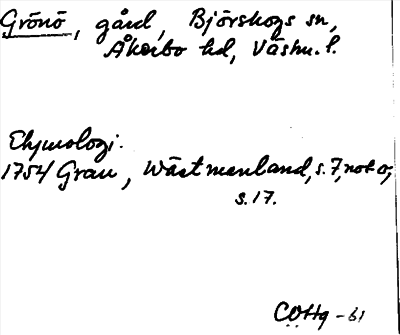 Grönö, gård, Björskogs sn,
Åkerbo hd, Västm. l.
Etymologi.
1754 Grau, Wästmanland, s. 7, not o,
s. 17.
COHg -61